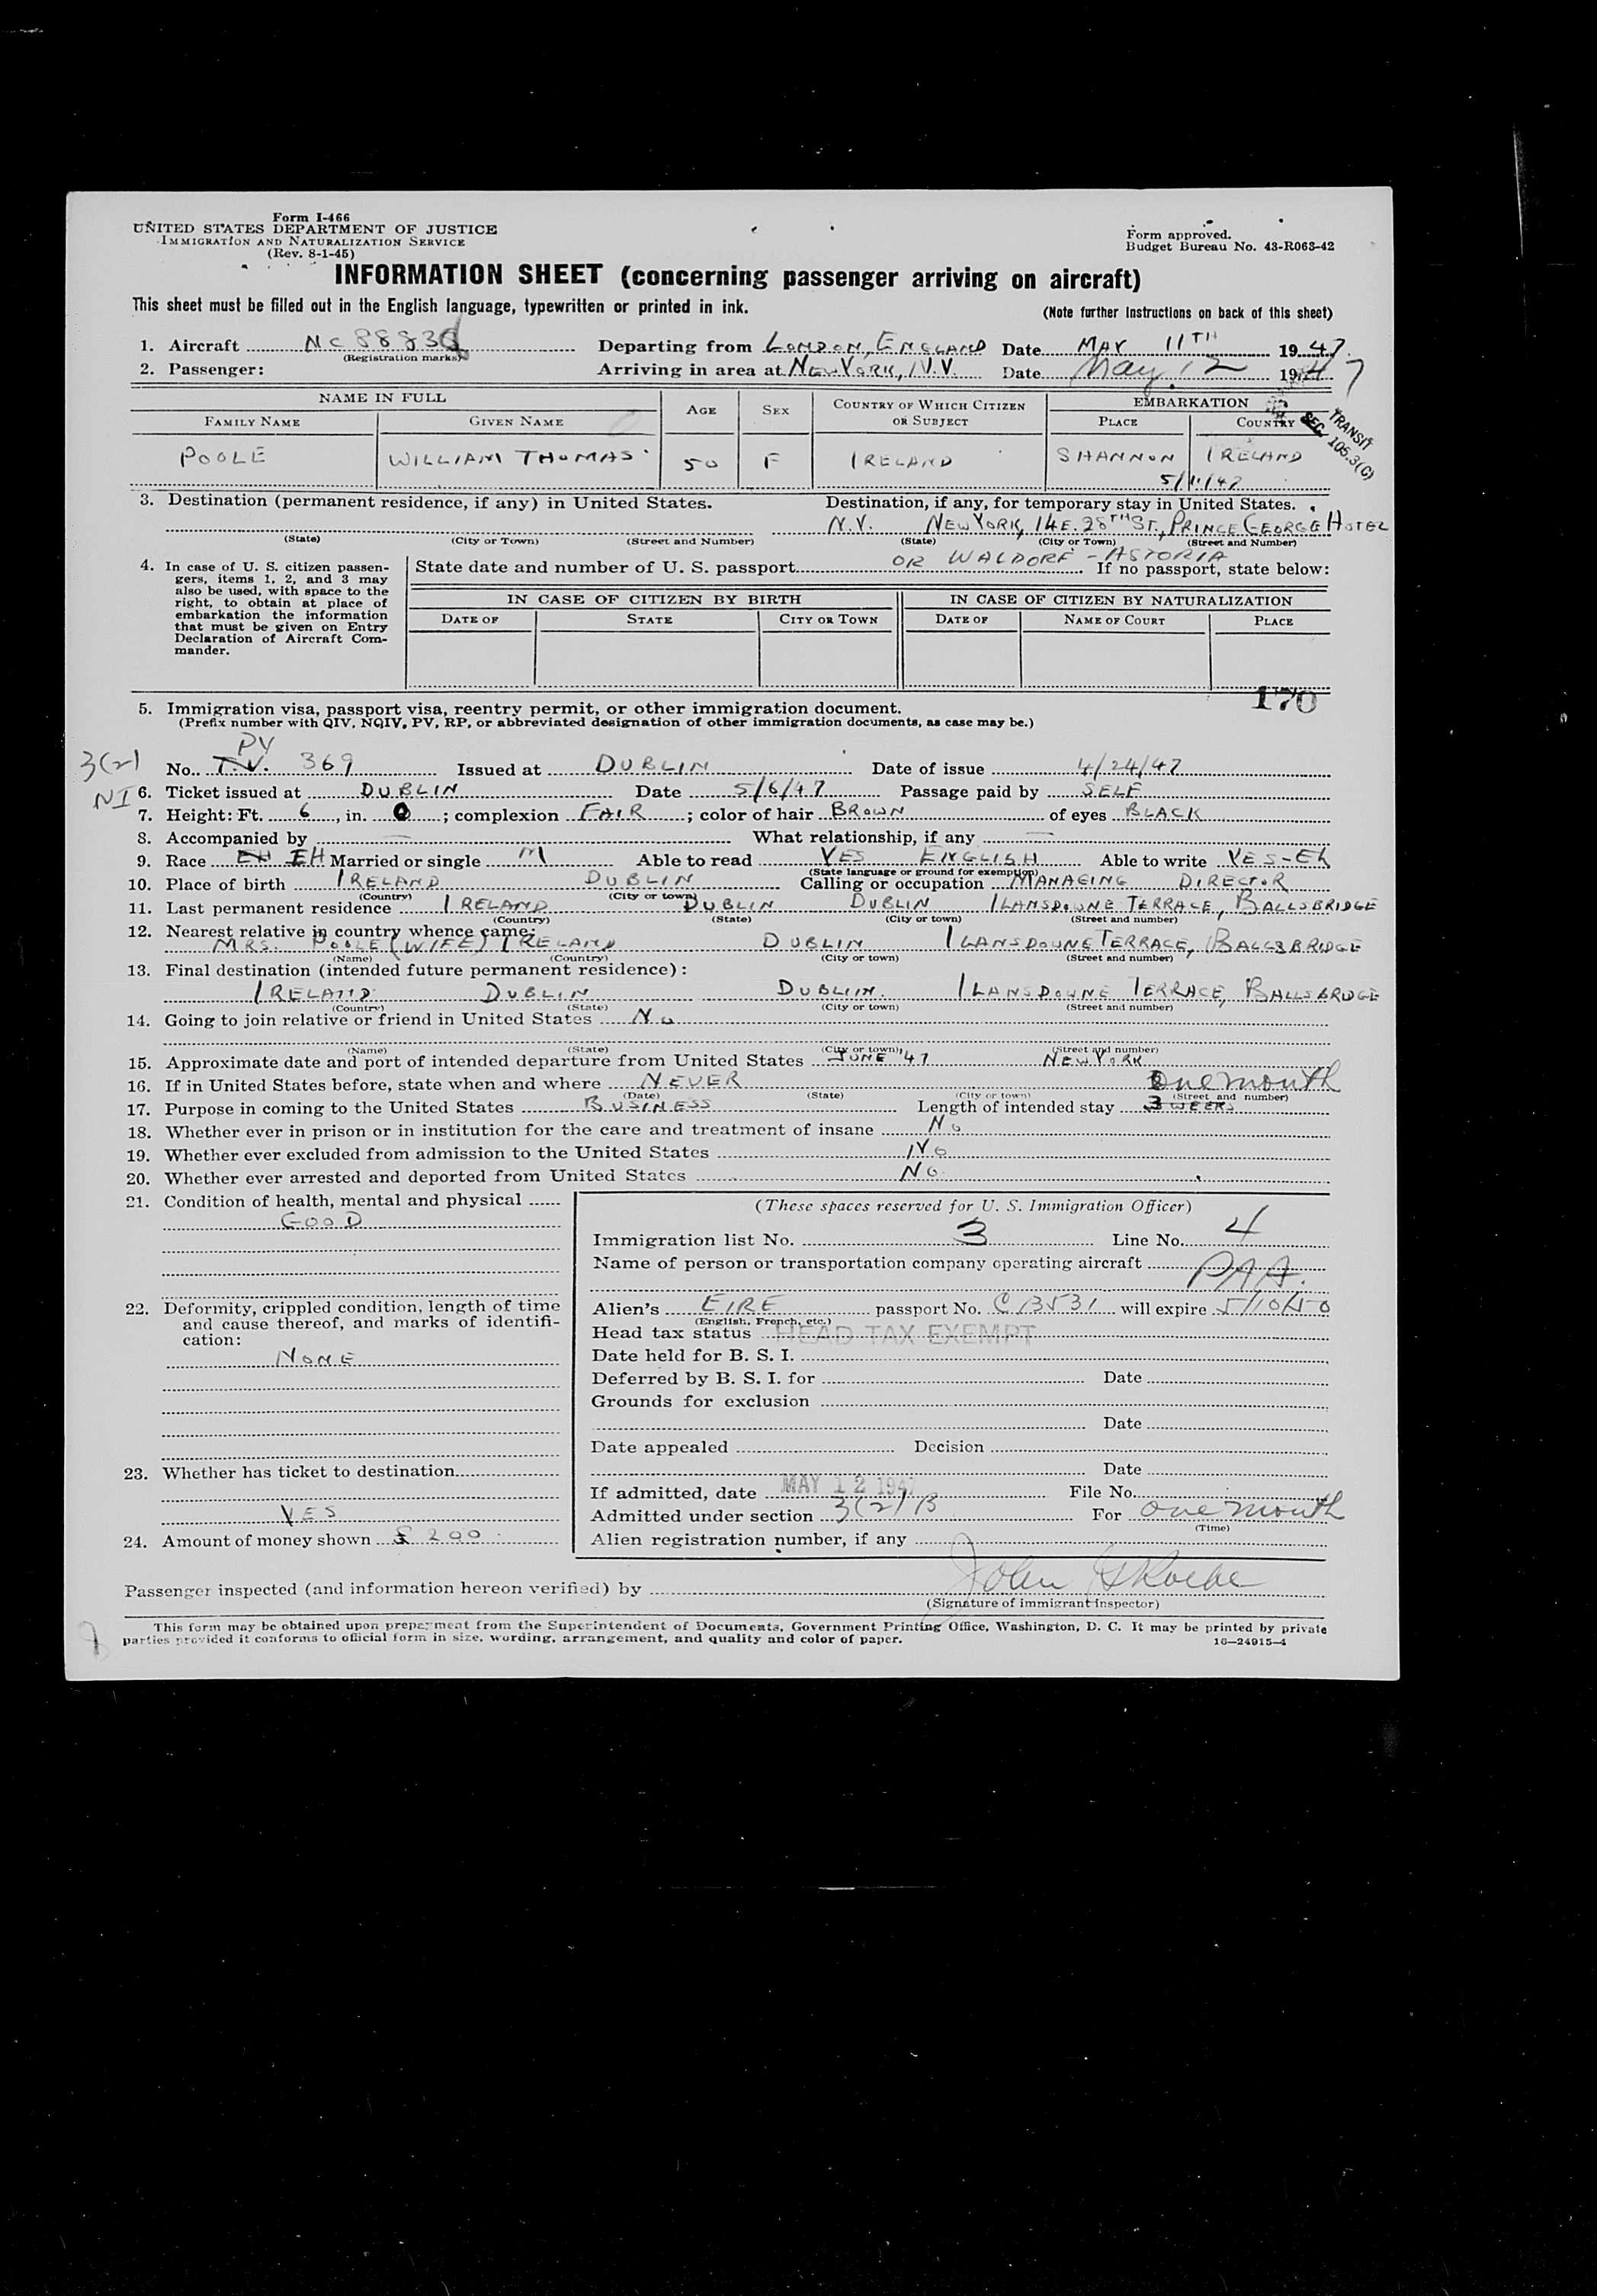 Form I-466
UNITED STATES DEPARTMENT OF JUSTICE
IMMIGRATION AND NATURALIZATION SERVICE
(Rev. 8-1-45)
Form approved.
Budget Bureau No. 43-R063-42
INFORMATION SHEET (concerning passenger arriving on aircraft)
This sheet must be filled out in the English language, typewritten or printed in ink.
(Note further instructions on back of this sheet)
1. Aircraft Departing from LONDON, ENGLAND Date MAY 11TH 1947.
(Registration marks)
2. Passenger: Arriving in area at NEW YORK, N.Y. Date May 12 1947
NAME IN FULL AGE SEX COUNTRY OF WHICH CITIZEN OR SUBJECT EMBARKATION
FAMILY NAME GIVEN NAME PLACE COUNTRY
TRANSIT
SEC. 105.3(C)
POOLE WILLIAM THOMAS 50 F IRELAND SHANNON IRELAND
5/11/47
3. Destination (permanent residence, if any) in United States. Destination, if any, for temporary stay in United States.
N.Y. NEW YORK, 14 E. 28TH ST, PRINCE GEORGE HOTEL
(State) (City or Town) (Street and Number) (State) (City or Town) (Street and Number)
OR WALDORF - ASTORIA
4. In case of U. S. citizen passengers, items 1, 2, and 3 may also be used, with space to the right, to obtain at place of embarkation the information that must be given on Entry Declaration of Aircraft Commander.
State date and number of U. S. passport If no passport, state below:
IN CASE OF CITIZEN BY BIRTH IN CASE OF CITIZEN BY NATURALIZATION
DATE OF STATE CITY OR TOWN DATE OF NAME OF COURT PLACE
170
5. Immigration visa, passport visa, reentry permit, or other immigration document.
(Prefix number with QIV, NQIV, PV, RP, or abbreviated designation of other immigration documents, as case may be.)
PV
3(2)
No. T.V. 369 Issued at DUBLIN Date of issue 4/24/47
NI
6. Ticket issued at DUBLIN Date 5/6/47 Passage paid by SELF
7. Height: Ft. 6, in. 0; complexion FAIR; color of hair BROWN of eyes BLACK
8. Accompanied by — What relationship, if any —
9. Race EH Married or single M Able to read YES ENGLISH Able to write YES-
(State language or ground for exemption)
10. Place of birth IRELAND DUBLIN Calling or occupation MANAGING DIRECTOR
(Country) (City or town)
11. Last permanent residence IRELAND DUBLIN DUBLIN 1 LANSDOWNE TERRACE, BALLSBRIDGE
(Country) (State) (City or town) (Street and number)
12. Nearest relative in country whence came:
MRS. POOLE (WIFE) IRELAND DUBLIN 1 LANSDOWNE TERRACE, BALLSBRIDGE
(Name) (Country) (City or town) (Street and number)
13. Final destination (intended future permanent residence):
IRELAND DUBLIN DUBLIN. 1 LANSDOWNE TERRACE, BALLSBRIDGE
(Country) (State) (City or town) (Street and number)
14. Going to join relative or friend in United States No
(Name) (State) (City or town) (Street and number)
15. Approximate date and port of intended departure from United States JUNE '47 NEW YORK
16. If in United States before, state when and where NEVER
(Date) (State) (City or town) (Street and number)
One month
17. Purpose in coming to the United States BUSINESS Length of intended stay 3 WEEKS
18. Whether ever in prison or in institution for the care and treatment of insane No
19. Whether ever excluded from admission to the United States No
20. Whether ever arrested and deported from United States No
21. Condition of health, mental and physical
GOOD
22. Deformity, crippled condition, length of time and cause thereof, and marks of identification:
NONE
23. Whether has ticket to destination
YES
24. Amount of money shown £ 200
(These spaces reserved for U. S. Immigration Officer)
Immigration list No. 3 Line No. 4
Name of person or transportation company operating aircraft
PAA.
Alien's EIRE passport No. C13531 will expire 5/10/50
(English, French, etc.)
Head tax status HEAD TAX EXEMPT
Date held for B. S. I.
Deferred by B. S. I. for Date
Grounds for exclusion
Date
Date appealed Decision
Date
If admitted, date MAY 12 1947 File No.
Admitted under section 3(2)B For one month
(Time)
Alien registration number, if any
Passenger inspected (and information hereon verified) by John
(Signature of immigrant inspector)
This form may be obtained upon prepayment from the Superintendent of Documents, Government Printing Office, Washington, D. C. It may be printed by private
parties provided it conforms to official form in size, wording, arrangement, and quality and color of paper. 16—24915-4